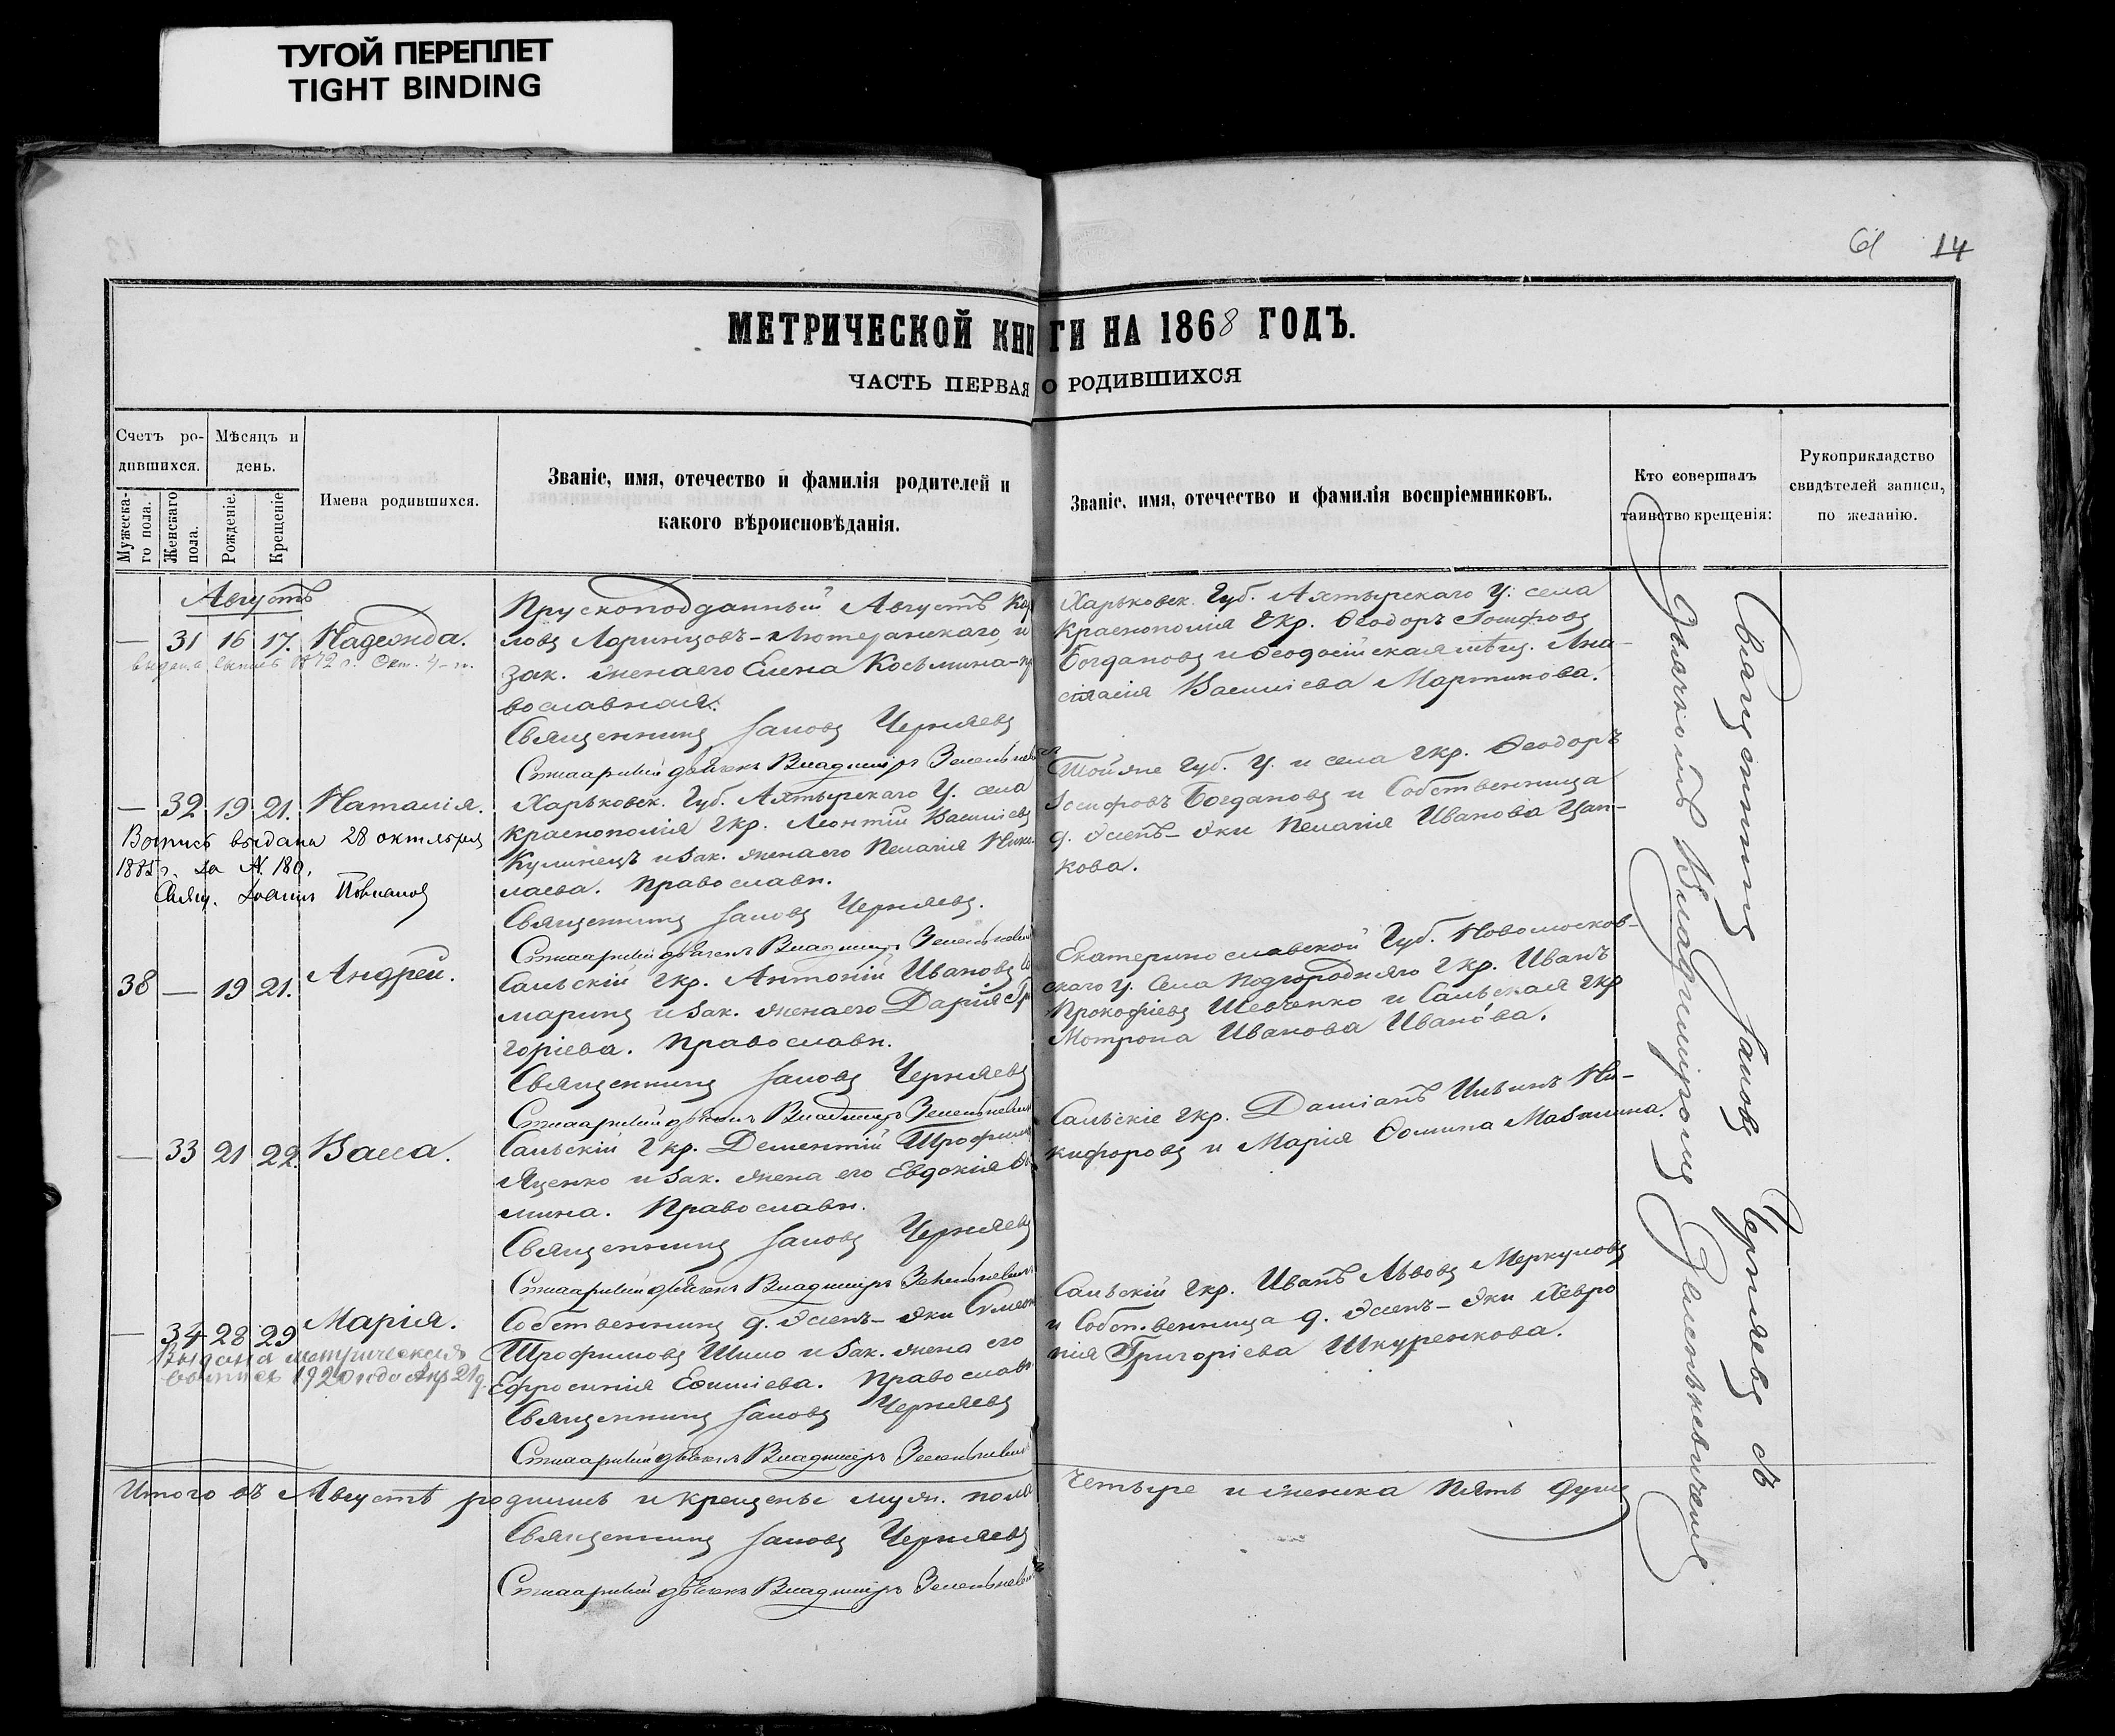 ТУГОЙ ПЕРЕПЛЕТ
TIGHT BINDING
14
МЕТРИЧЕСКОЙ КНИГИ НА 1868 ГОДЪ.
ЧАСТЬ ПЕРВАЯ О РОДИВШИХСЯ
Счетъ ро-
дившихся.
Мужеска-
го пола.
Женскаго
пола.
Мѣсяцъ и
день.
Рожденіе.
Крещеніе
Имена родившихся.
Званіе, имя, отечество и фамилія родителей и
какого вѣроисповѣданія.
Званіе, имя, отечество и фамилія воспріемниковъ.
Кто совершалъ
таинство крещенія:
Рукоприкладство
свидѣтелей записи,
по желанію.
Августъ
— 31 16 17. Надежда.
выдана выпись 1872 г. Окт. 4-го.
Прускоподданный Августъ
ловъ Адринцовъ-Лютеранскаго, и
зак. жена его Елена Косьмина-пр
вославная.
Священникъ Іаковъ Черняевъ
Стихарный дьячекъ Владимиръ
Харьковск. Губ. Ахтырскаго У. села
Краснополія Гкр. Ѳеодоръ Іосифовъ
Богдановъ и Ѳеодосійская мѣщ. Ана-
стасія Василіева Мартинова.
— 32 19 21. Наталія.
Выпись выдана 28 октября
1885 г. за № 180.
Свящ. Іоаннъ
Харьковск. Губ. Ахтырскаго У. села
Краснополія Гкр. Леонтій Василіевъ
Кулинецъ и зак. жена его Пелагія Нико
лаева. Православн.
Священникъ Іаковъ Черняевъ.
Стихарный дьячекъ Владимиръ
Тойже Губ. У. и села Гкр. Ѳеодоръ
Іосифовъ Богдановъ и Собственница
д. Эленъ-Эки Пелагія Иванова Цап-
кова.
38 — 19 21. Андрей.
Сальскій Гкр. Антоній Ивановъ
маринъ и зак. жена его Дарія Гри
горіева. Православн.
Священникъ Іаковъ Черняевъ
Стихарный дьячекъ Владимиръ
Екатеринославской Губ. Новомосков-
скаго У. Села Подгородняго Гкр. Иванъ
Прокофіевъ Шевченко и Сальская Гкр
Мотрона Иванова Иванова.
— 33 21 22. Васса.
Сальскій Гкр. Дементій Трофим
Яценко и зак. жена его Евдокія
мина. Православн.
Священникъ Іаковъ Черняевъ
Стихарный дьячекъ Владимиръ
Сальскіе Гкр. Даміанъ Ильинъ Ни-
кифоровъ и Марія Ѳомина Мазалина.
— 34 28 29 Марія.
Выдана метрическая
выпись 1920 года Апр 21 д.
Собственникъ д. Эленъ-Эки Симеон
Трофимовъ Шило и зак. жена его
Ефросинія Евѳиміева. Православн
Священникъ Іаковъ Черняевъ
Стихарный дьячекъ Владимиръ
Сальскій Гкр. Иванъ Львовъ Меркуловъ
и Собственница д. Эленъ-Эки Хевро
нія Григоріева Шкуренкова.
Итого въ Августѣ родились и крещены муж. пола четыре и женска пять душъ
Священникъ Іаковъ Черняевъ
Стихарный дьячекъ Владимиръ
Священникъ Іаковъ Черняевъ съ
Дьячкомъ Владимиромъ